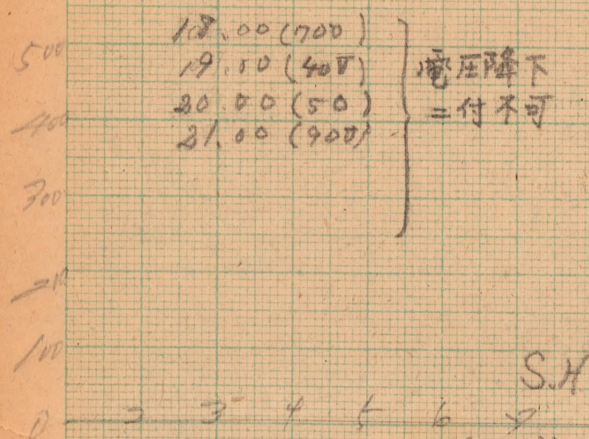 18.00 (700)
19.00 (400)
20.00 (50)
21.00 (900)
電圧降下
ニ付不可
500
400
300
200
100
S.H
0 2 3 4 5 6 7